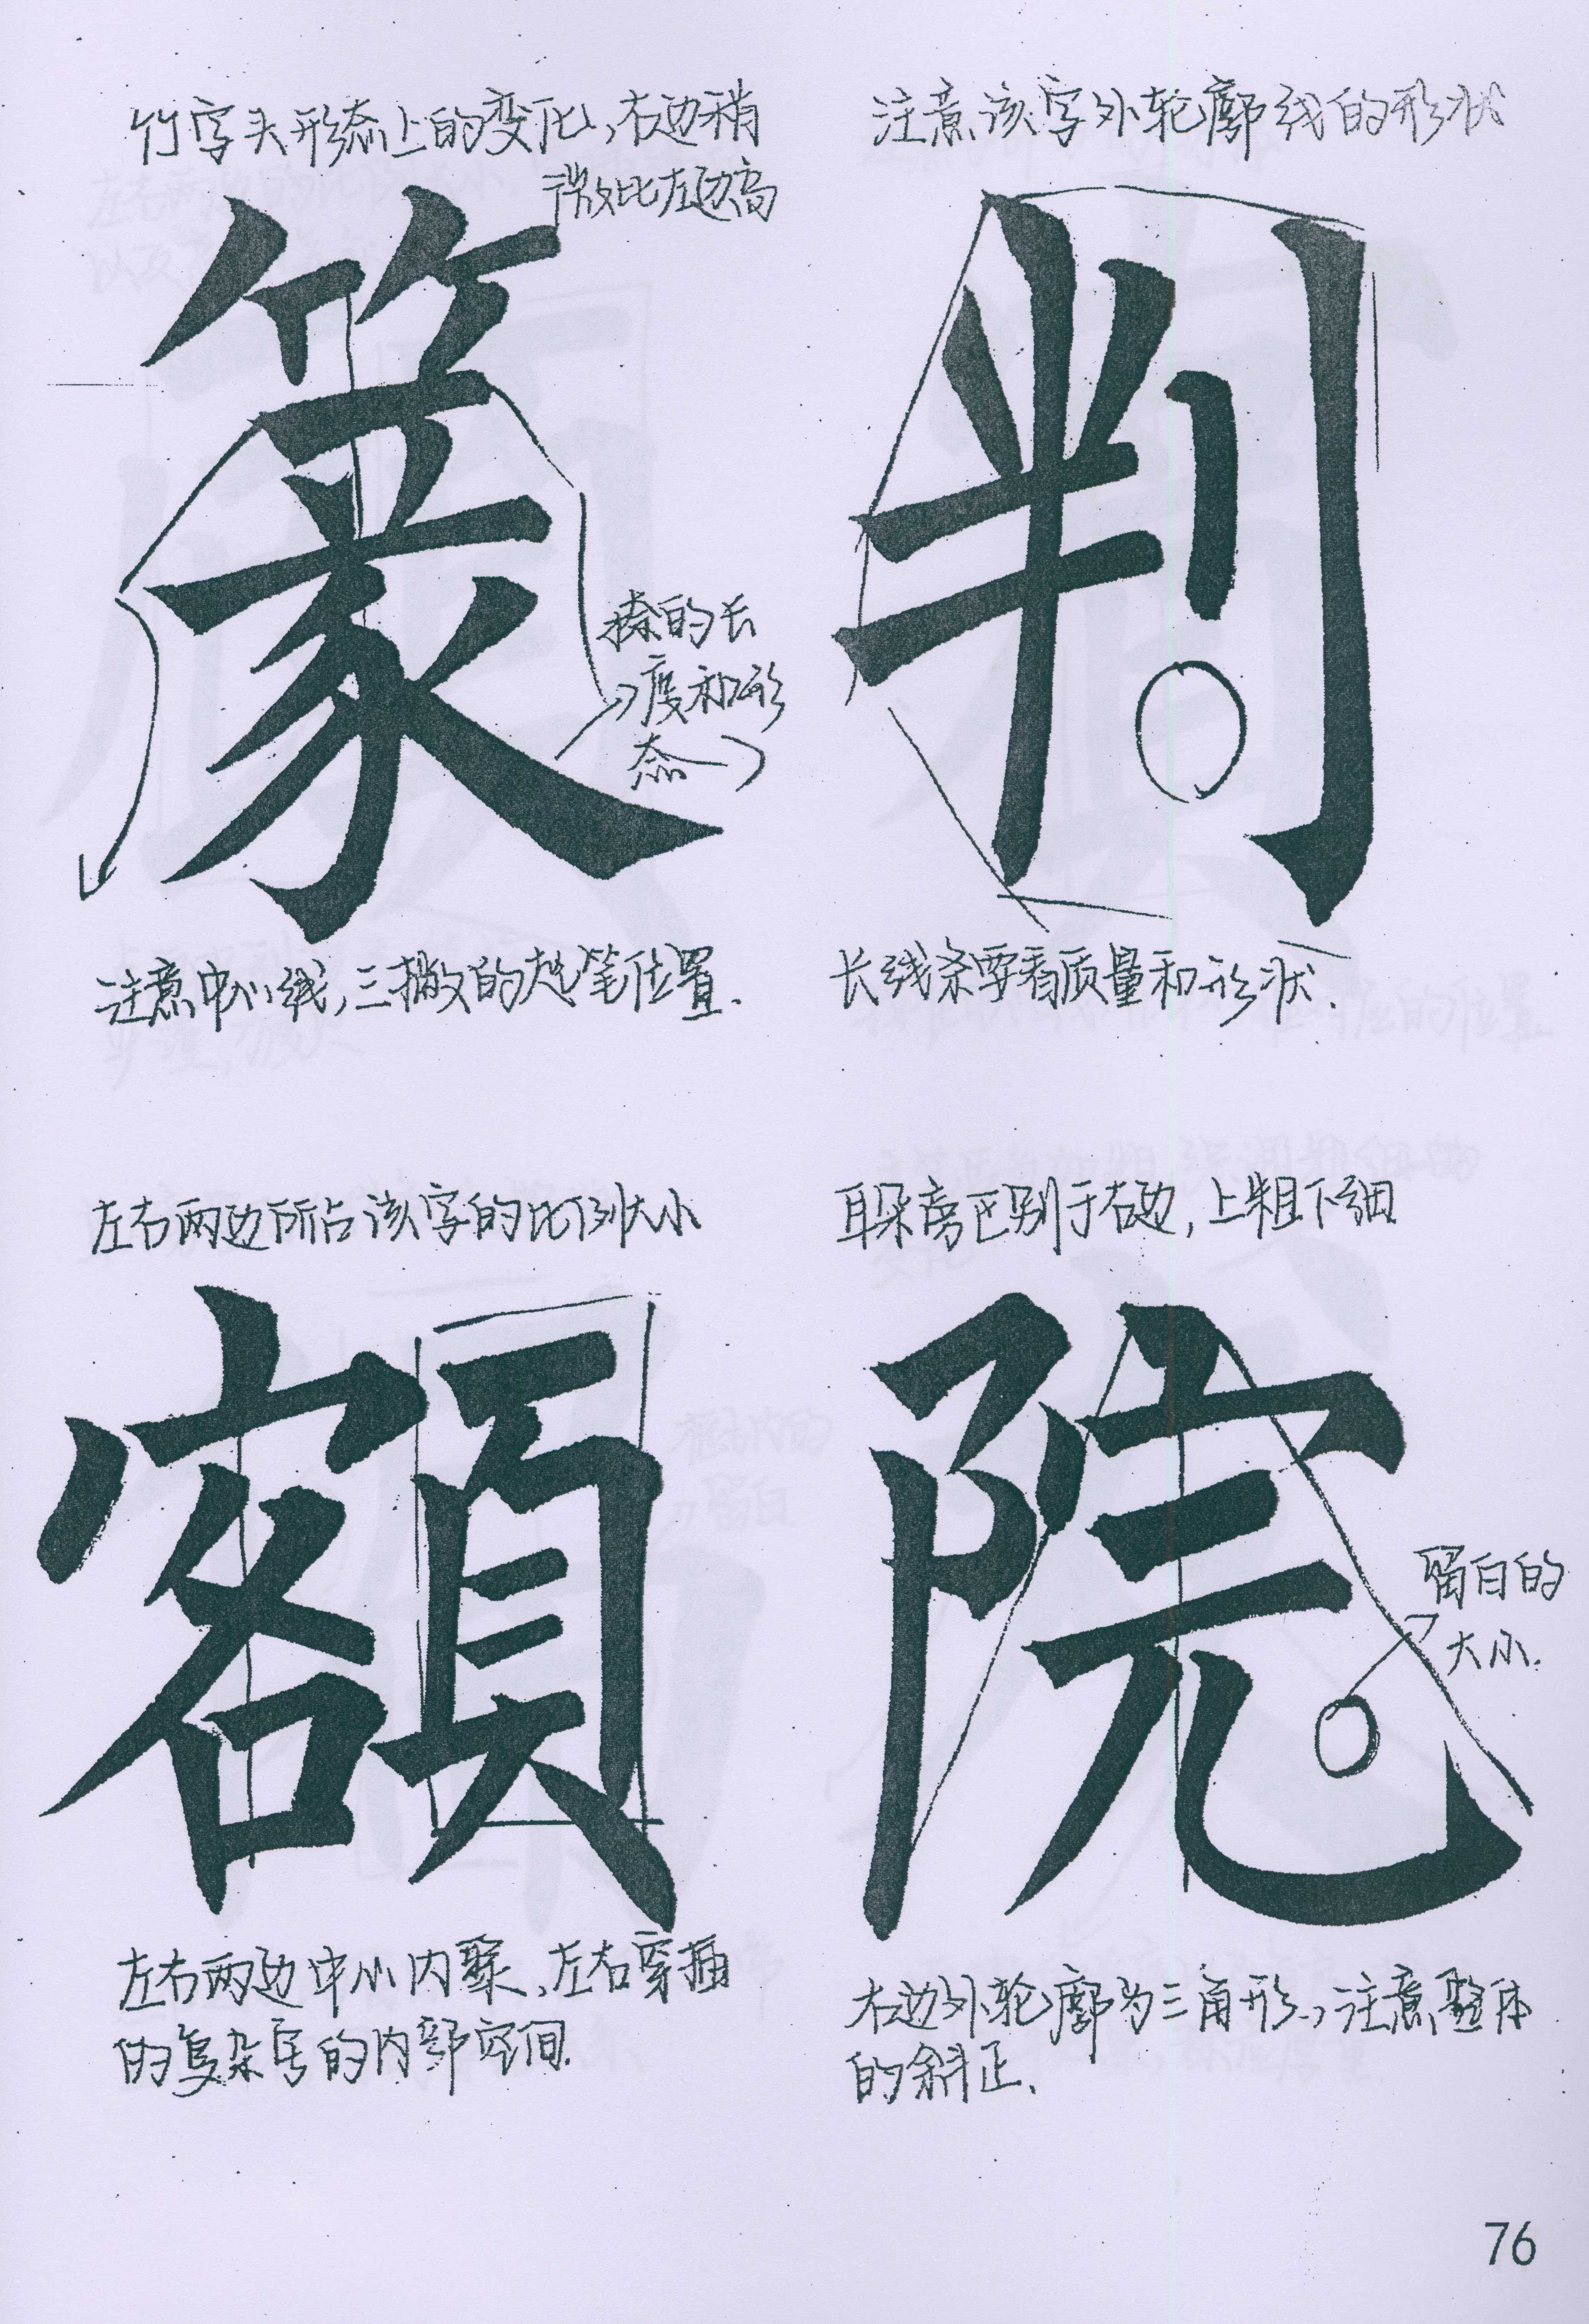 竹字头形态上的变化,右边稍
微比左边高
篆
捺的长
度和形
态
注意中心线,三撇的起笔位置.
注意该字外轮廓线的形状
判
长线条要看质量和形状.
左右两边所占该字的比例大小
額
左右两边中心内聚,左右穿插
的复杂字的内部空间.
耳朵旁区别于右边,上粗下细
院
留白的
大小.
右边外轮廓为三角形,注意整体
的斜正.
76